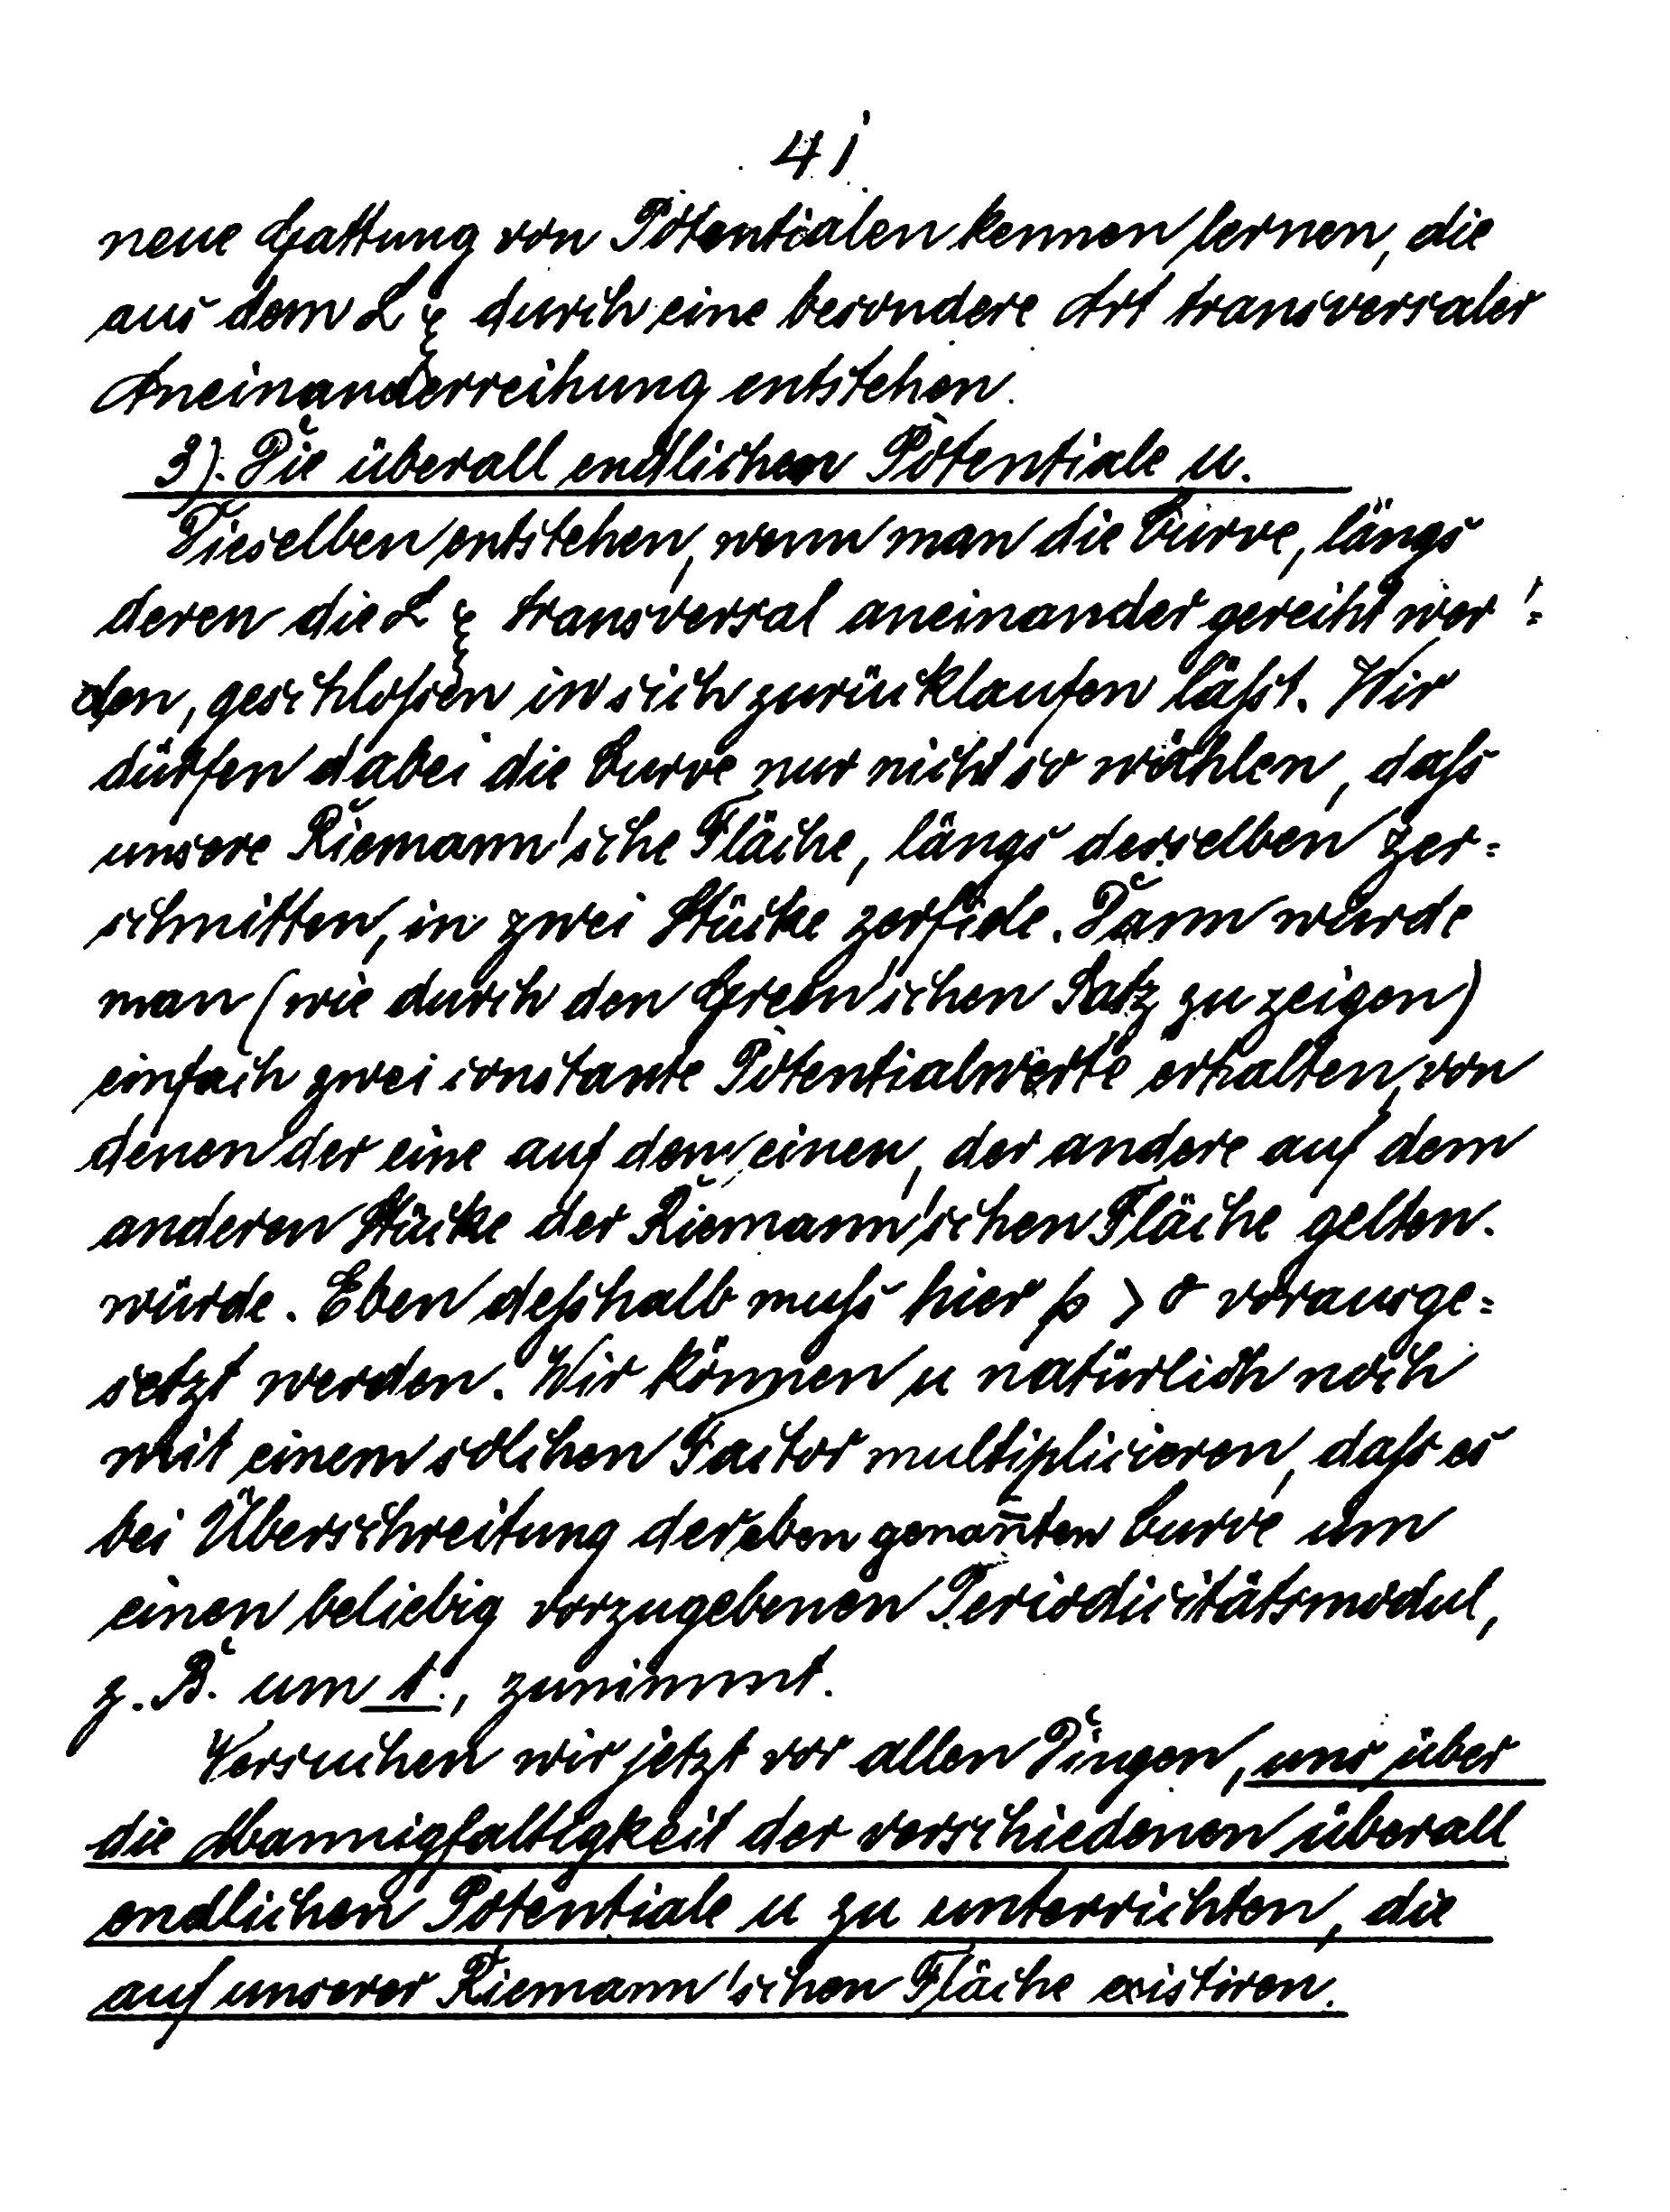 41
neue Gattung von Potentialen kennen lernen, die
aus dem L ξ durch eine besondere Art transversaler
Aneinanderreihung entstehen.
3). Die überall endlichen Potentiale u.
Dieselben entstehen, wenn man die Curve, längs
deren die L ξ transversal aneinander gereiht wer=
den, geschloßen in sich zurücklaufen läßt. Wir
dürfen dabei die Curve nur nicht so wählen, daß
unsere Riemann'sche Fläche, längs derselben zer=
schnitten, in zwei Stücke zerfiele. Dann würde
man (wie durch den Green'schen Satz zu zeigen)
einfach zwei constante Potentialwerte erhalten, von
denen der eine auf dem einen, der andere auf dem
anderen Stücke der Riemann'schen Fläche gelten.
würde. Eben deßhalb muß hier p > 0 vorausge=
setzt werden. Wir können u natürlich noch
mit einem solchen Factor multiplicieren, daß es
bei Überschreitung der eben genan̄ten Curve um
einen beliebig vorzugebenen Periodicitätsmodul,
z. B. um 1., zunimmt.
Versuchen wir jetzt vor allen Dingen, uns über
die Mannigfaltigkeit der verschiedenen überall
endlichen Potentiale u zu unterrichten, die
auf unserer Riemann'schen Fläche existiren.